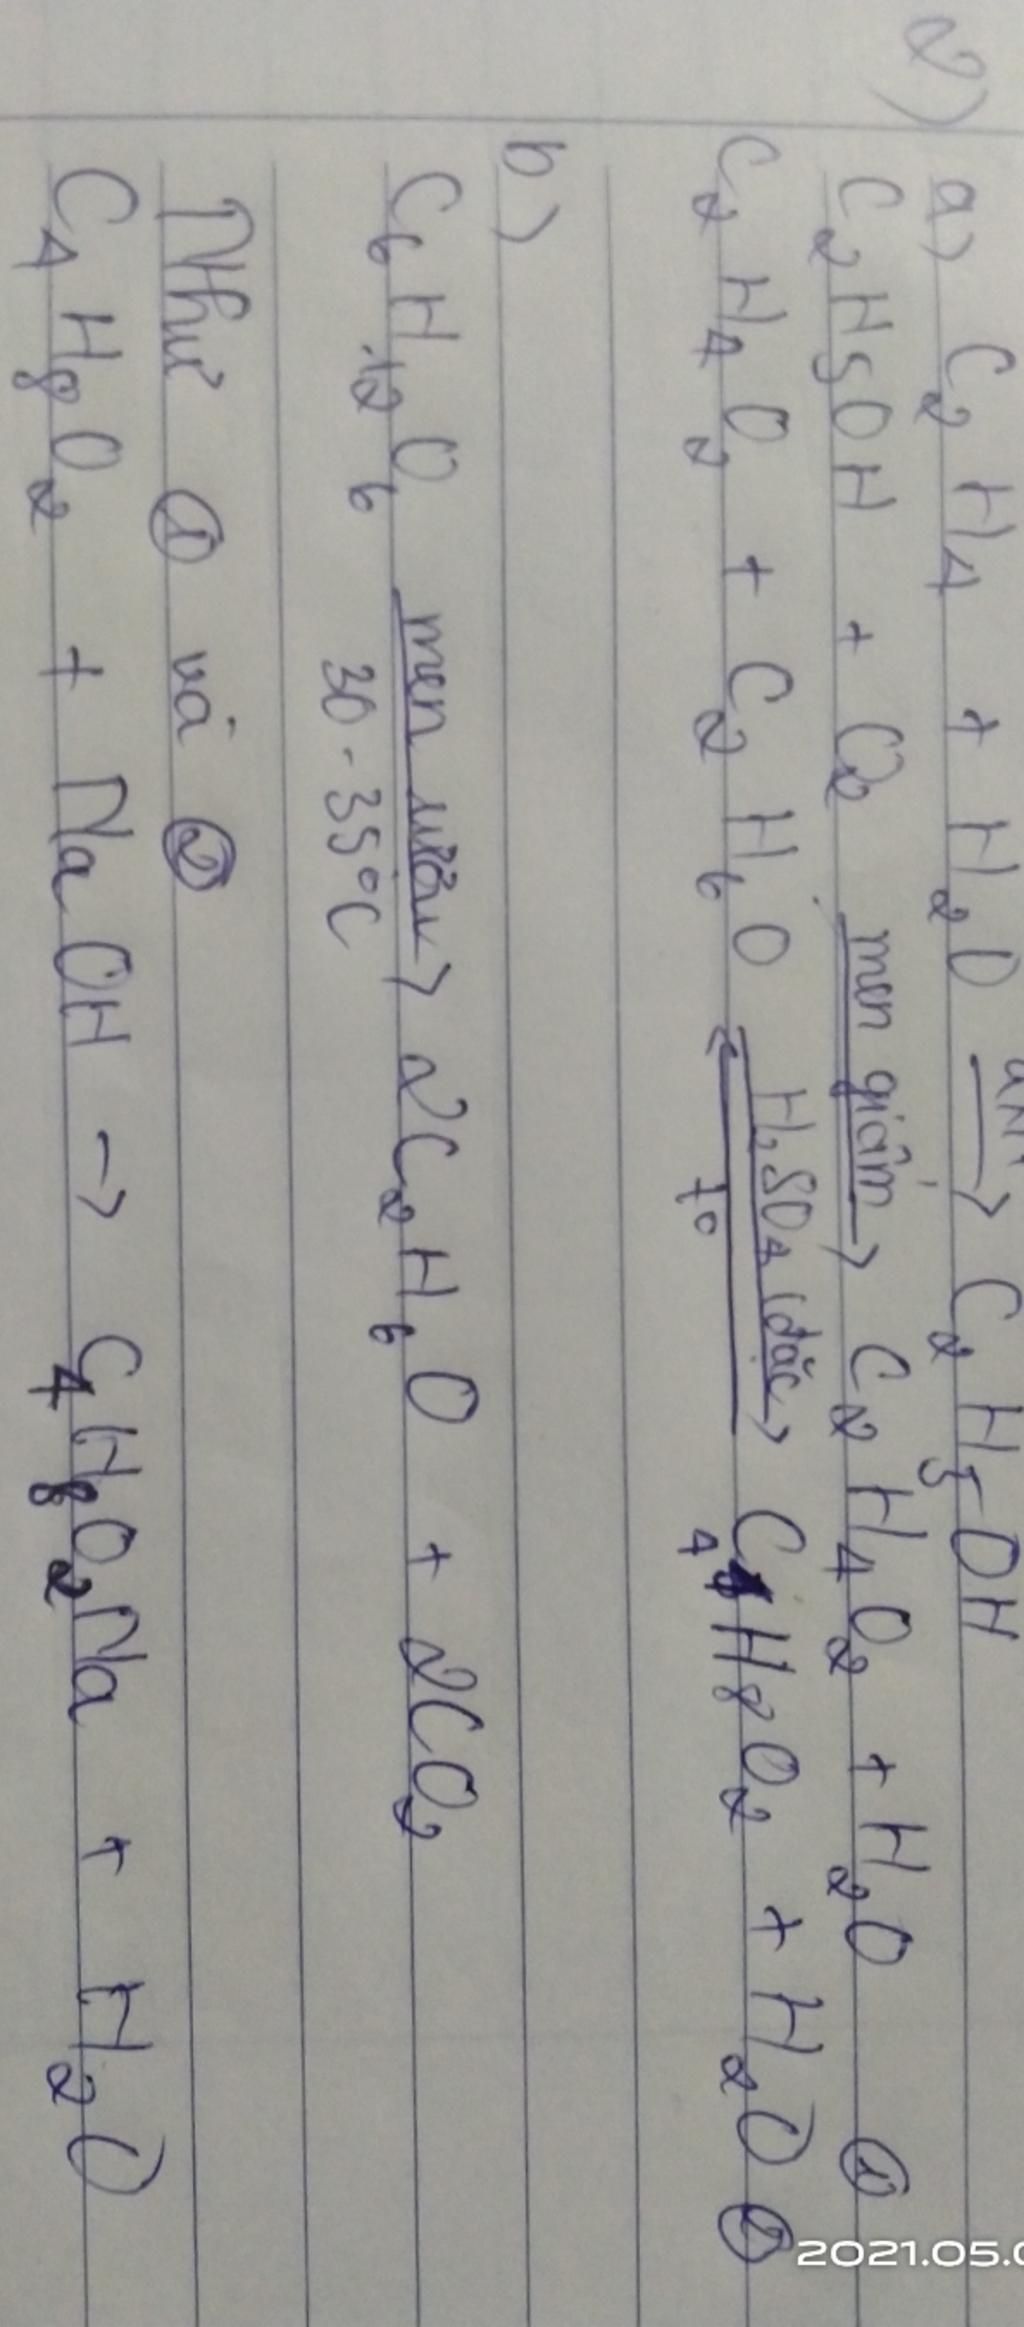 2)
a) C₂H₄ + H₂O → C₂H₅OH
C₂H5OH + O₂ men giấm → C₂H₄O₂ + H₂O ①
C₂H₄O₂ + C₂H₆O H₂SO₄ (đặc) ⇄ t⁰ C₄H₈O₂ + H₂O ②
b)
C₆H₁₂O₆ men rượu → 30-35⁰C 2C₂H₆O + 2CO₂
Như ① và ②
C₄H₈O₂ + NaOH → C₄H₈O₂Na + H₂O
2021.05.0